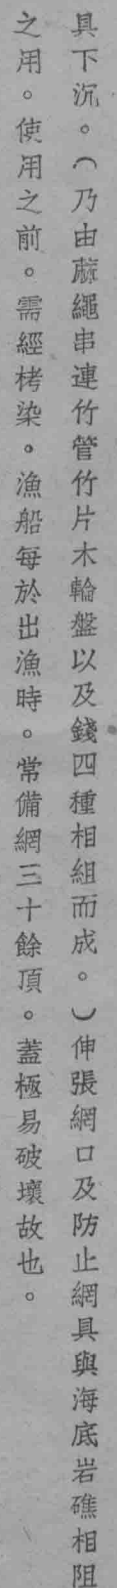 具下沉。(乃由蔴繩串連竹管竹片木輪盤以及錢四種相組而成。)伸張網口及防止網具與海底岩礁相阻
之用。使用之前。需經栲染。漁船每於出漁時。常備網三十餘頂。蓋極易破壞故也。